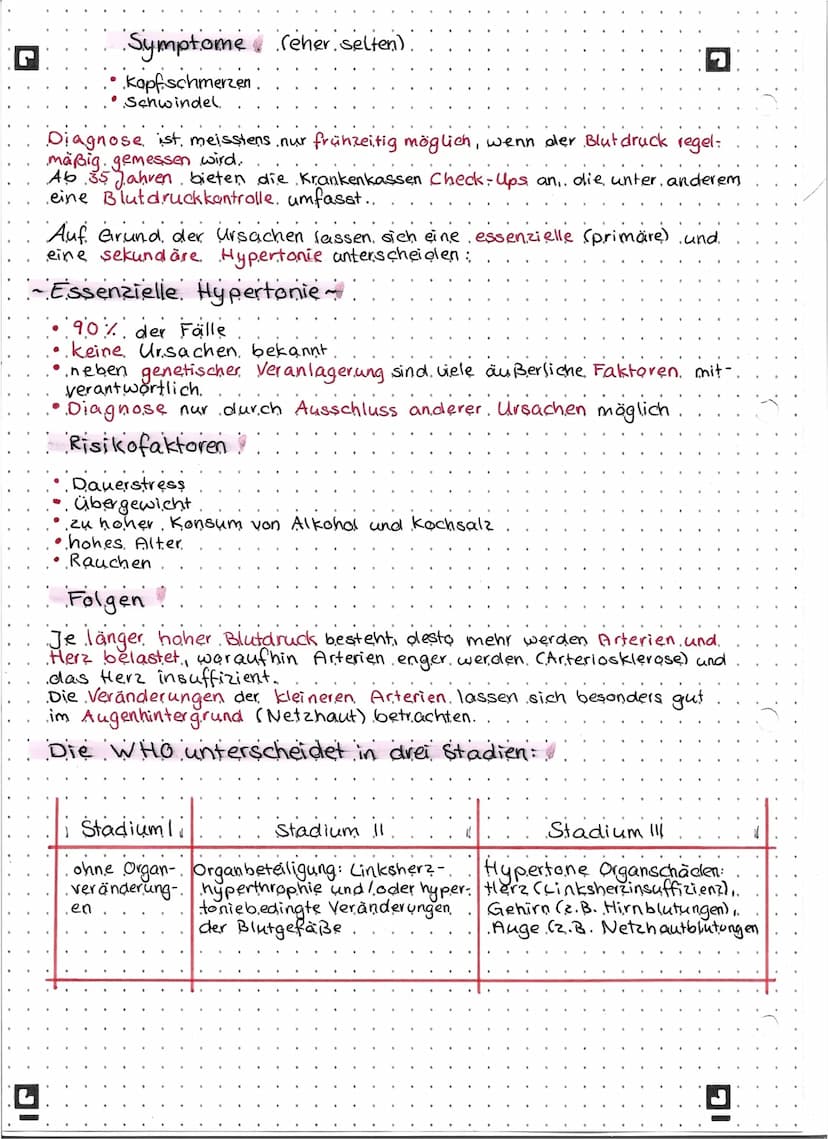 Symptome (eher selten)
• Kopfschmerzen
• Schwindel
Diagnose ist meisstens nur frühzeitig möglich, wenn der Blutdruck regel-
mäßig gemessen wird.
Ab 35 Jahren bieten die Krankenkassen Check-Ups an, die unter anderem
eine Blutdruckkontrolle umfasst.
Auf Grund der Ursachen lassen sich eine essenzielle (primäre) und
eine sekundäre Hypertonie unterscheiden:
~Essenzielle Hypertonie~
• 90% der Fälle
• keine Ursachen bekannt
• neben genetischer Veranlagerung sind viele äußerliche Faktoren mit-
verantwortlich.
• Diagnose nur durch Ausschluss anderer Ursachen möglich
Risikofaktoren
• Dauerstress
• Übergewicht
• zu hoher Konsum von Alkohol und Kochsalz
• hohes Alter
• Rauchen
Folgen
Je länger hoher Blutdruck besteht, desto mehr werden Arterien und
Herz belastet, woraufhin Arterien enger werden (Arteriosklerose) und
das Herz insuffizient.
Die Veränderungen der kleineren Arterien lassen sich besonders gut
im Augenhintergrund (Netzhaut) betrachten.
Die WHO unterscheidet in drei Stadien:
Stadium I
ohne Organ-
veränderung-
en
Stadium II
Organbeteiligung: Linksherz-
hyperthrophie und/oder hyper-
toniebedingte Veränderungen
der Blutgefäße
Stadium III
Hypertone Organschäden:
Herz (Linksherzinsuffizienz),
Gehirn (z.B. Hirnblutungen),
Auge (z.B. Netzhautblutungen